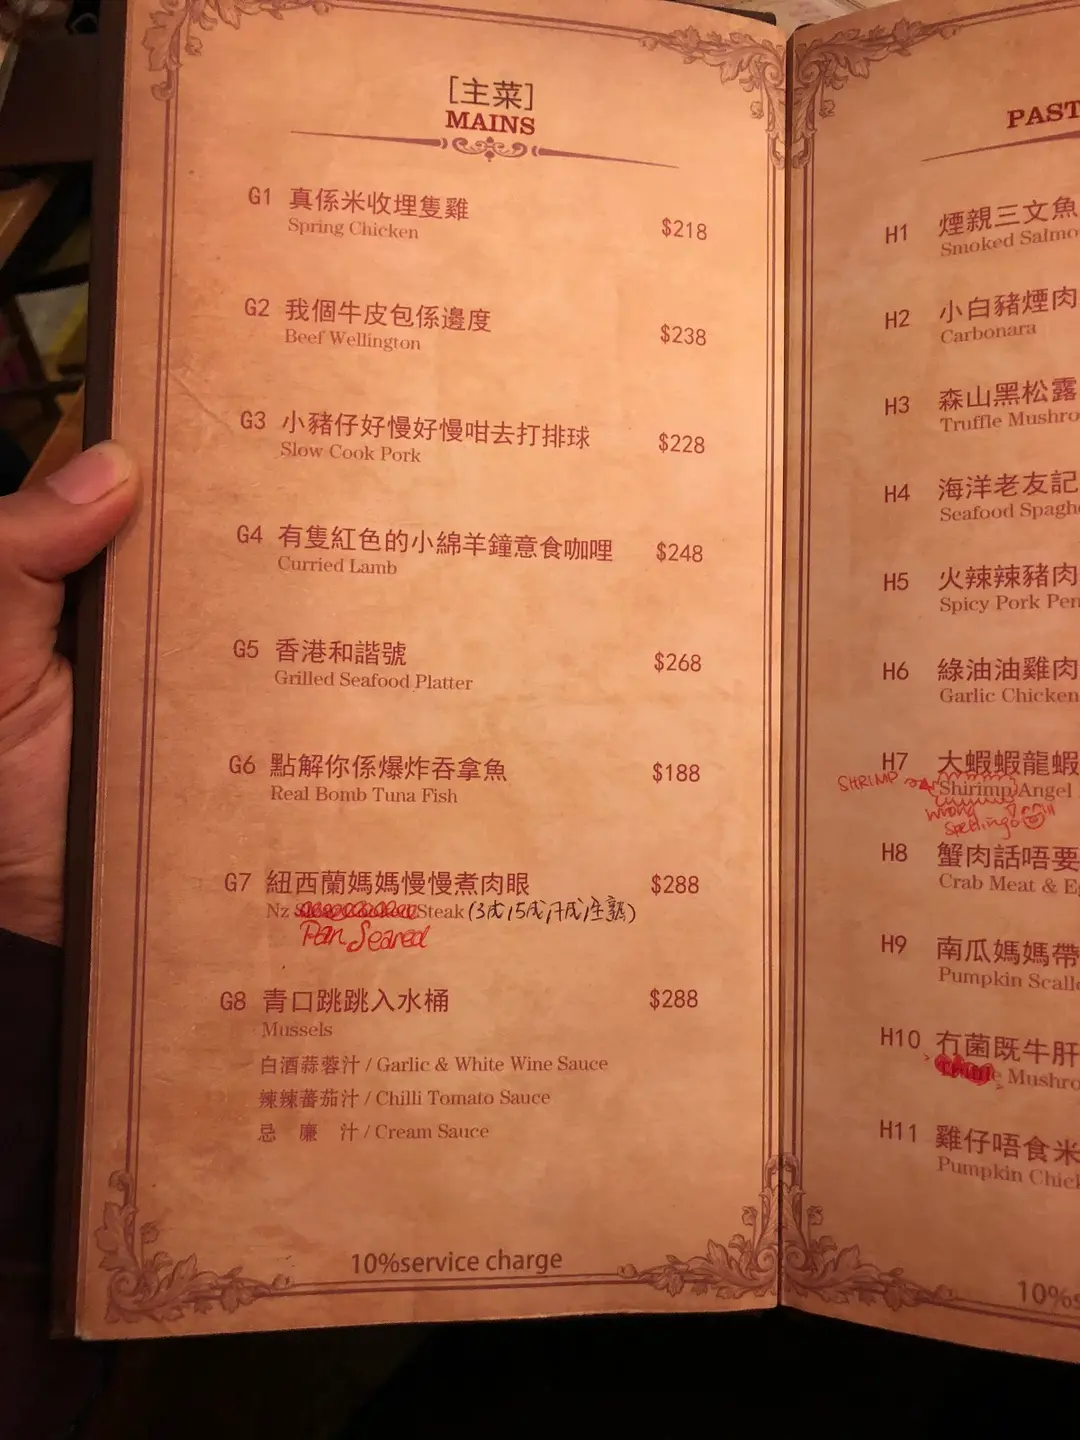 [主菜]
MAINS
G1 真係米收埋隻雞 $218
Spring Chicken
G2 我個牛皮包係邊度 $238
Beef Wellington
G3 小豬仔好慢好慢咁去打排球 $228
Slow Cook Pork
G4 有隻紅色的小綿羊鐘意食咖哩 $248
Curried Lamb
G5 香港和諧號 $268
Grilled Seafood Platter
G6 點解你係爆炸吞拿魚 $188
Real Bomb Tuna Fish
G7 紐西蘭媽媽慢慢煮肉眼 $288
Nz Slow Cooked Steak (3成,5成,7成,全熟)
Pan Seared
G8 青口跳跳入水桶 $288
Mussels
白酒蒜蓉汁 / Garlic & White Wine Sauce
辣辣蕃茄汁 / Chilli Tomato Sauce
忌廉汁 / Cream Sauce
10%service charge
PAST
H1 煙親三文魚
Smoked Salmo
H2 小白豬煙肉
Carbonara
H3 森山黑松露
Truffle Mushro
H4 海洋老友記
Seafood Spagh
H5 火辣辣豬肉
Spicy Pork Pen
H6 綠油油雞肉
Garlic Chicken
H7 大蝦蝦龍蝦
SHRIMP Shirimp Angel
wrong
spelling
H8 蟹肉話唔要
Crab Meat & E
H9 南瓜媽媽帶
Pumpkin Scall
H10 冇菌既牛肝
Truffle Mushro
H11 雞仔唔食米
Pumpkin Chic
10%s